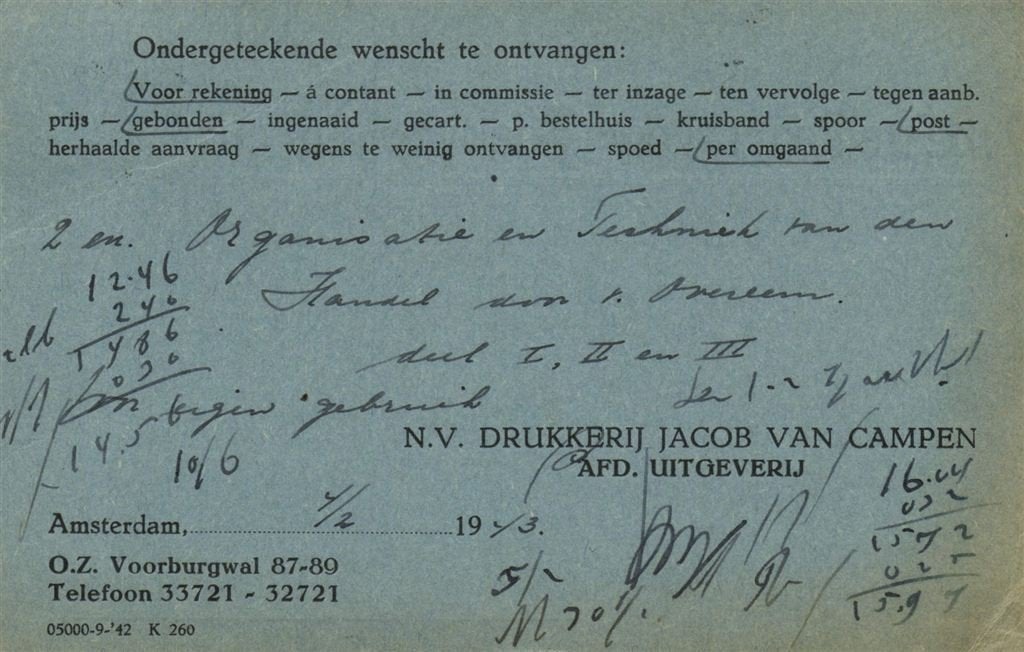 Ondergeteekende wenscht te ontvangen:
Voor rekening — á contant — in commissie — ter inzage — ten vervolge — tegen aanb.
prijs — gebonden — ingenaaid — gecart. — p. bestelhuis — kruisband — spoor — post —
herhaalde aanvraag — wegens te weinig ontvangen — spoed — per omgaand —
2 en. Organisatie en Techniek van den
Handel door v. Overeem.
deel I, II en III
eigen gebruik
12.46
240
1486
030
14.5
10/6
N.V. DRUKKERIJ JACOB VAN CAMPEN
AFD. UITGEVERIJ
16.04
032
1572
025
15.97
Amsterdam, 4/2 19 43.
O.Z. Voorburgwal 87-89
Telefoon 33721 - 32721
05000-9-'42 K 260